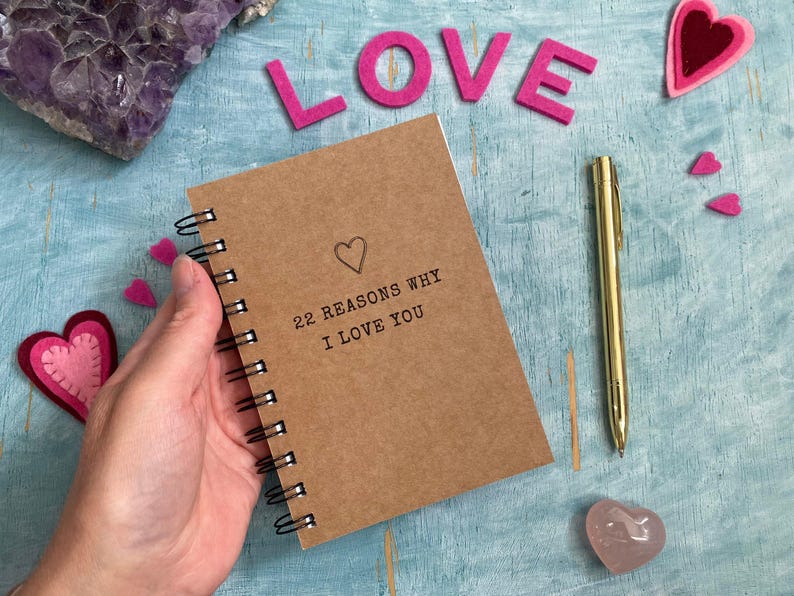 LOVE
22 REASONS WHY
I LOVE YOU